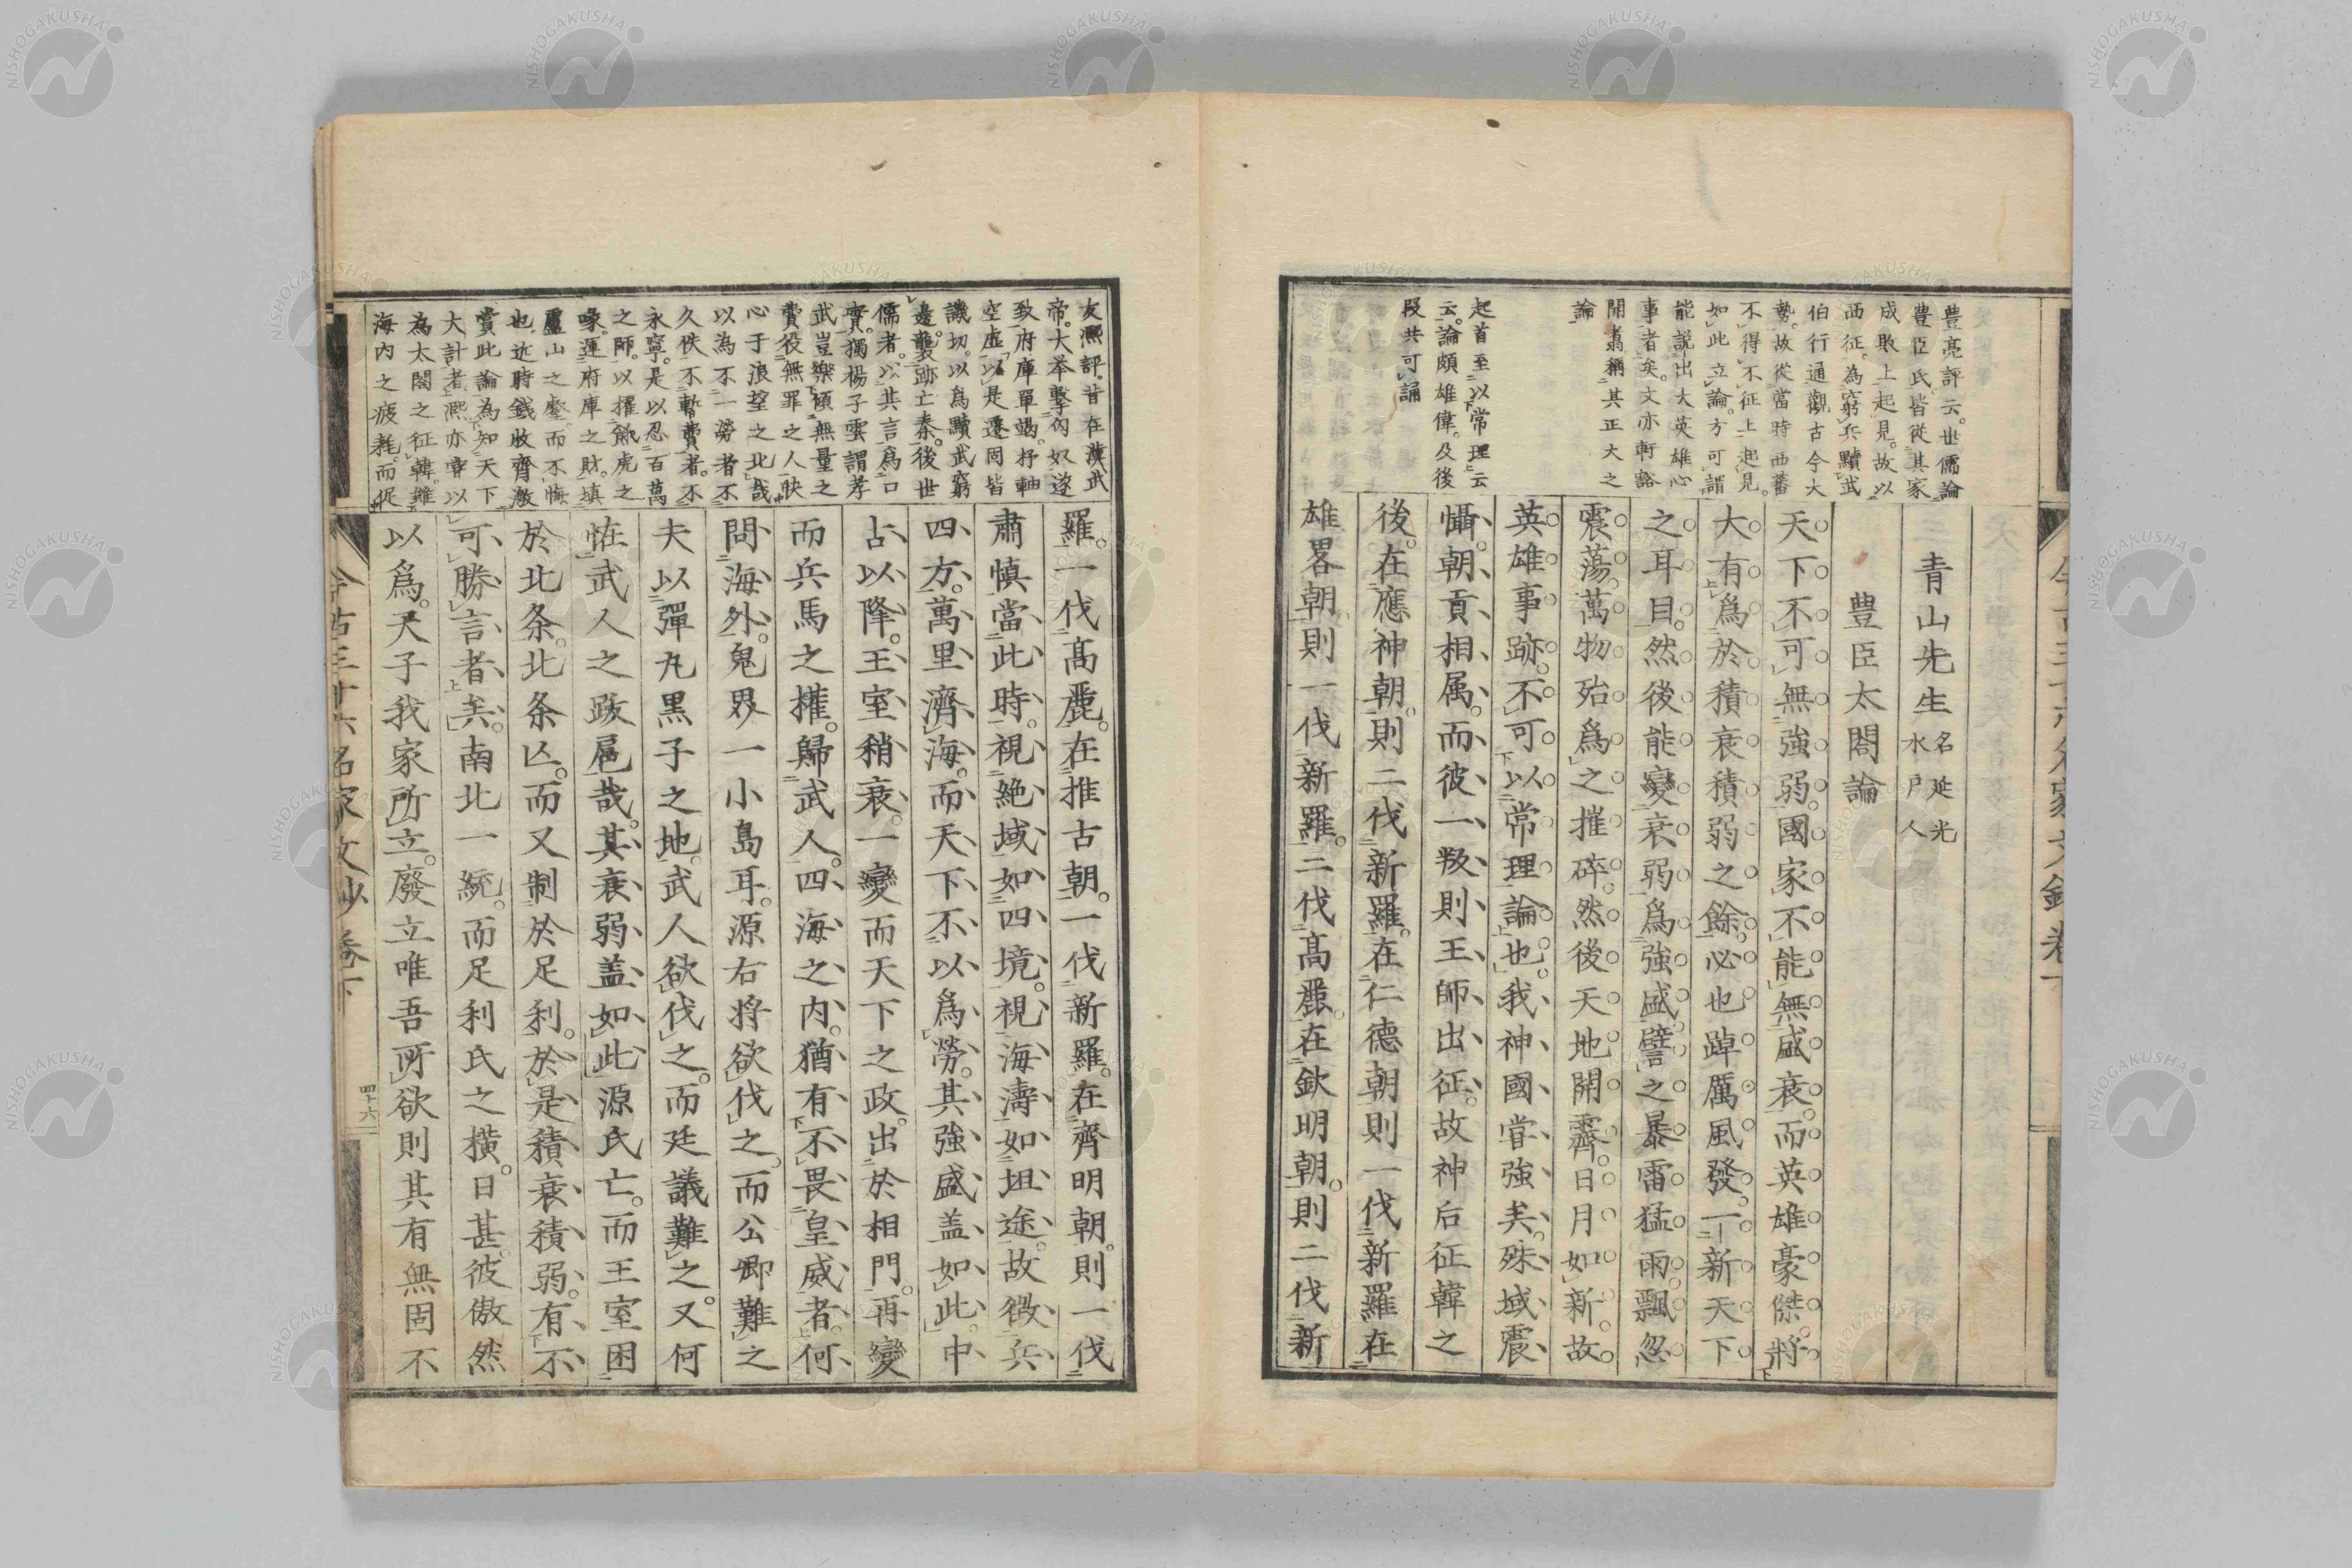 豊亮評云。世儒論
豊臣氏。皆從其家
成敗上起見。故以
西征。為窮兵黷武
伯行通觀古今大
勢。故從當時西蕃
不得不征上起見。
如此立論。方可謂
能説出大英雄心
事者矣。文亦軒豁
開鬯稱其正大之
論
起首至以常理云
云。論頗雄偉。及後
段共可誦
青山先生
名延光
水戸人
豊臣太閤論
天下不可無強弱。國家不能無盛衰。而英雄豪傑。將
大有爲於積衰積弱之餘。必也踔厲風發。一新天下
之耳目。然後能變衰弱爲強盛。譬之暴雷猛雨。飄忽
震蕩。萬物殆爲之摧碎。然後天地開霽。日月如新。故
英雄事跡。不可以常理論也。我神國嘗強矣。殊域震
懾。朝貢相属。而彼一叛則王師出征。故神后征韓之
後。在應神朝。則二伐新羅。在仁德朝則一伐新羅在
雄畧朝則一伐新羅。二伐高麗。在欽明朝。則二伐新
羅。一伐高麗。在推古朝。一伐新羅。在齊明朝。則一伐
肅慎當此時。視絶域如四境。視海濤如坦途。故徴兵
四方。萬里濟海。而天下不以爲勞。其強盛盖如此。中
占以降。王室稍衰。一變而天下之政。出於相門。再變
而兵馬之權。歸武人。四海之内。猶有不畏皇威者。何
問海外。鬼界一小島耳。源右将欲伐之。而公卿難之
夫以彈丸黒子之地。武人欲伐之。而廷議難之。又何
恠武人之跋扈哉。其衰弱盖如此源氏亡。而王室困
於北条。北条亾。而又制於足利。於是積衰積弱。有不
可勝言者矣。南北一統。而足利氏之横。日甚。彼傲然
以爲。天子我家所立。廢立唯吾所欲則其有無固不
友熈評。昔在漢武
帝。大举擊匈奴遂
致府庫單竭。杼軸
空虚。以是遷固皆
譏切。以為黷武窮
邊。襲跡亡秦。後世
儒者。以其言爲口
實。獨楊子雲謂孝
武豈樂傾無量之
費役無罪之人快
心于浪望之北哉
以為不一勞者不
久佚不暫費者。不
永寧。是以忍百萬
之師。以摧餓虎之
喙。運府庫之財。塡
盧山之壑。而不悔
也。近時錢收齊激
賞此論為知天下
大計者。熈亦嘗以
為太閤之征韓。雖
海内之疲耗。而促
今古三十六名家文鈔卷下
今古三十六名家文鈔卷下
四十六